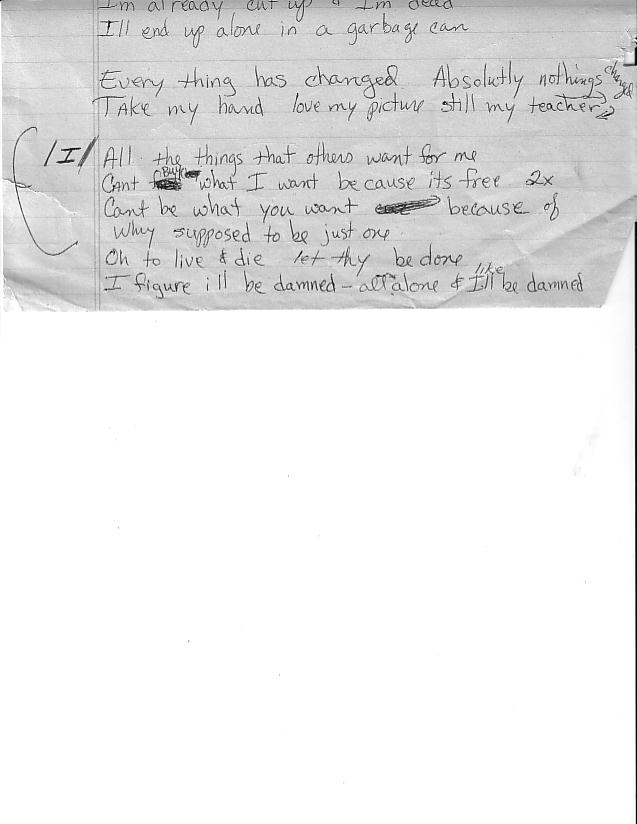 I'm already cut up & I'm dead
I'll end up alone in a garbage can
Every thing has changed Absolutly nothings changed
TAke my hand love my picture still my teacher
/I/ All the things that others want for me
Cant Buy what I want because its free 2x
Cant be what you want because of
Why supposed to be just one
Oh to live & die let thy be done
I figure i'll be damned - all alone & I'll like be damned